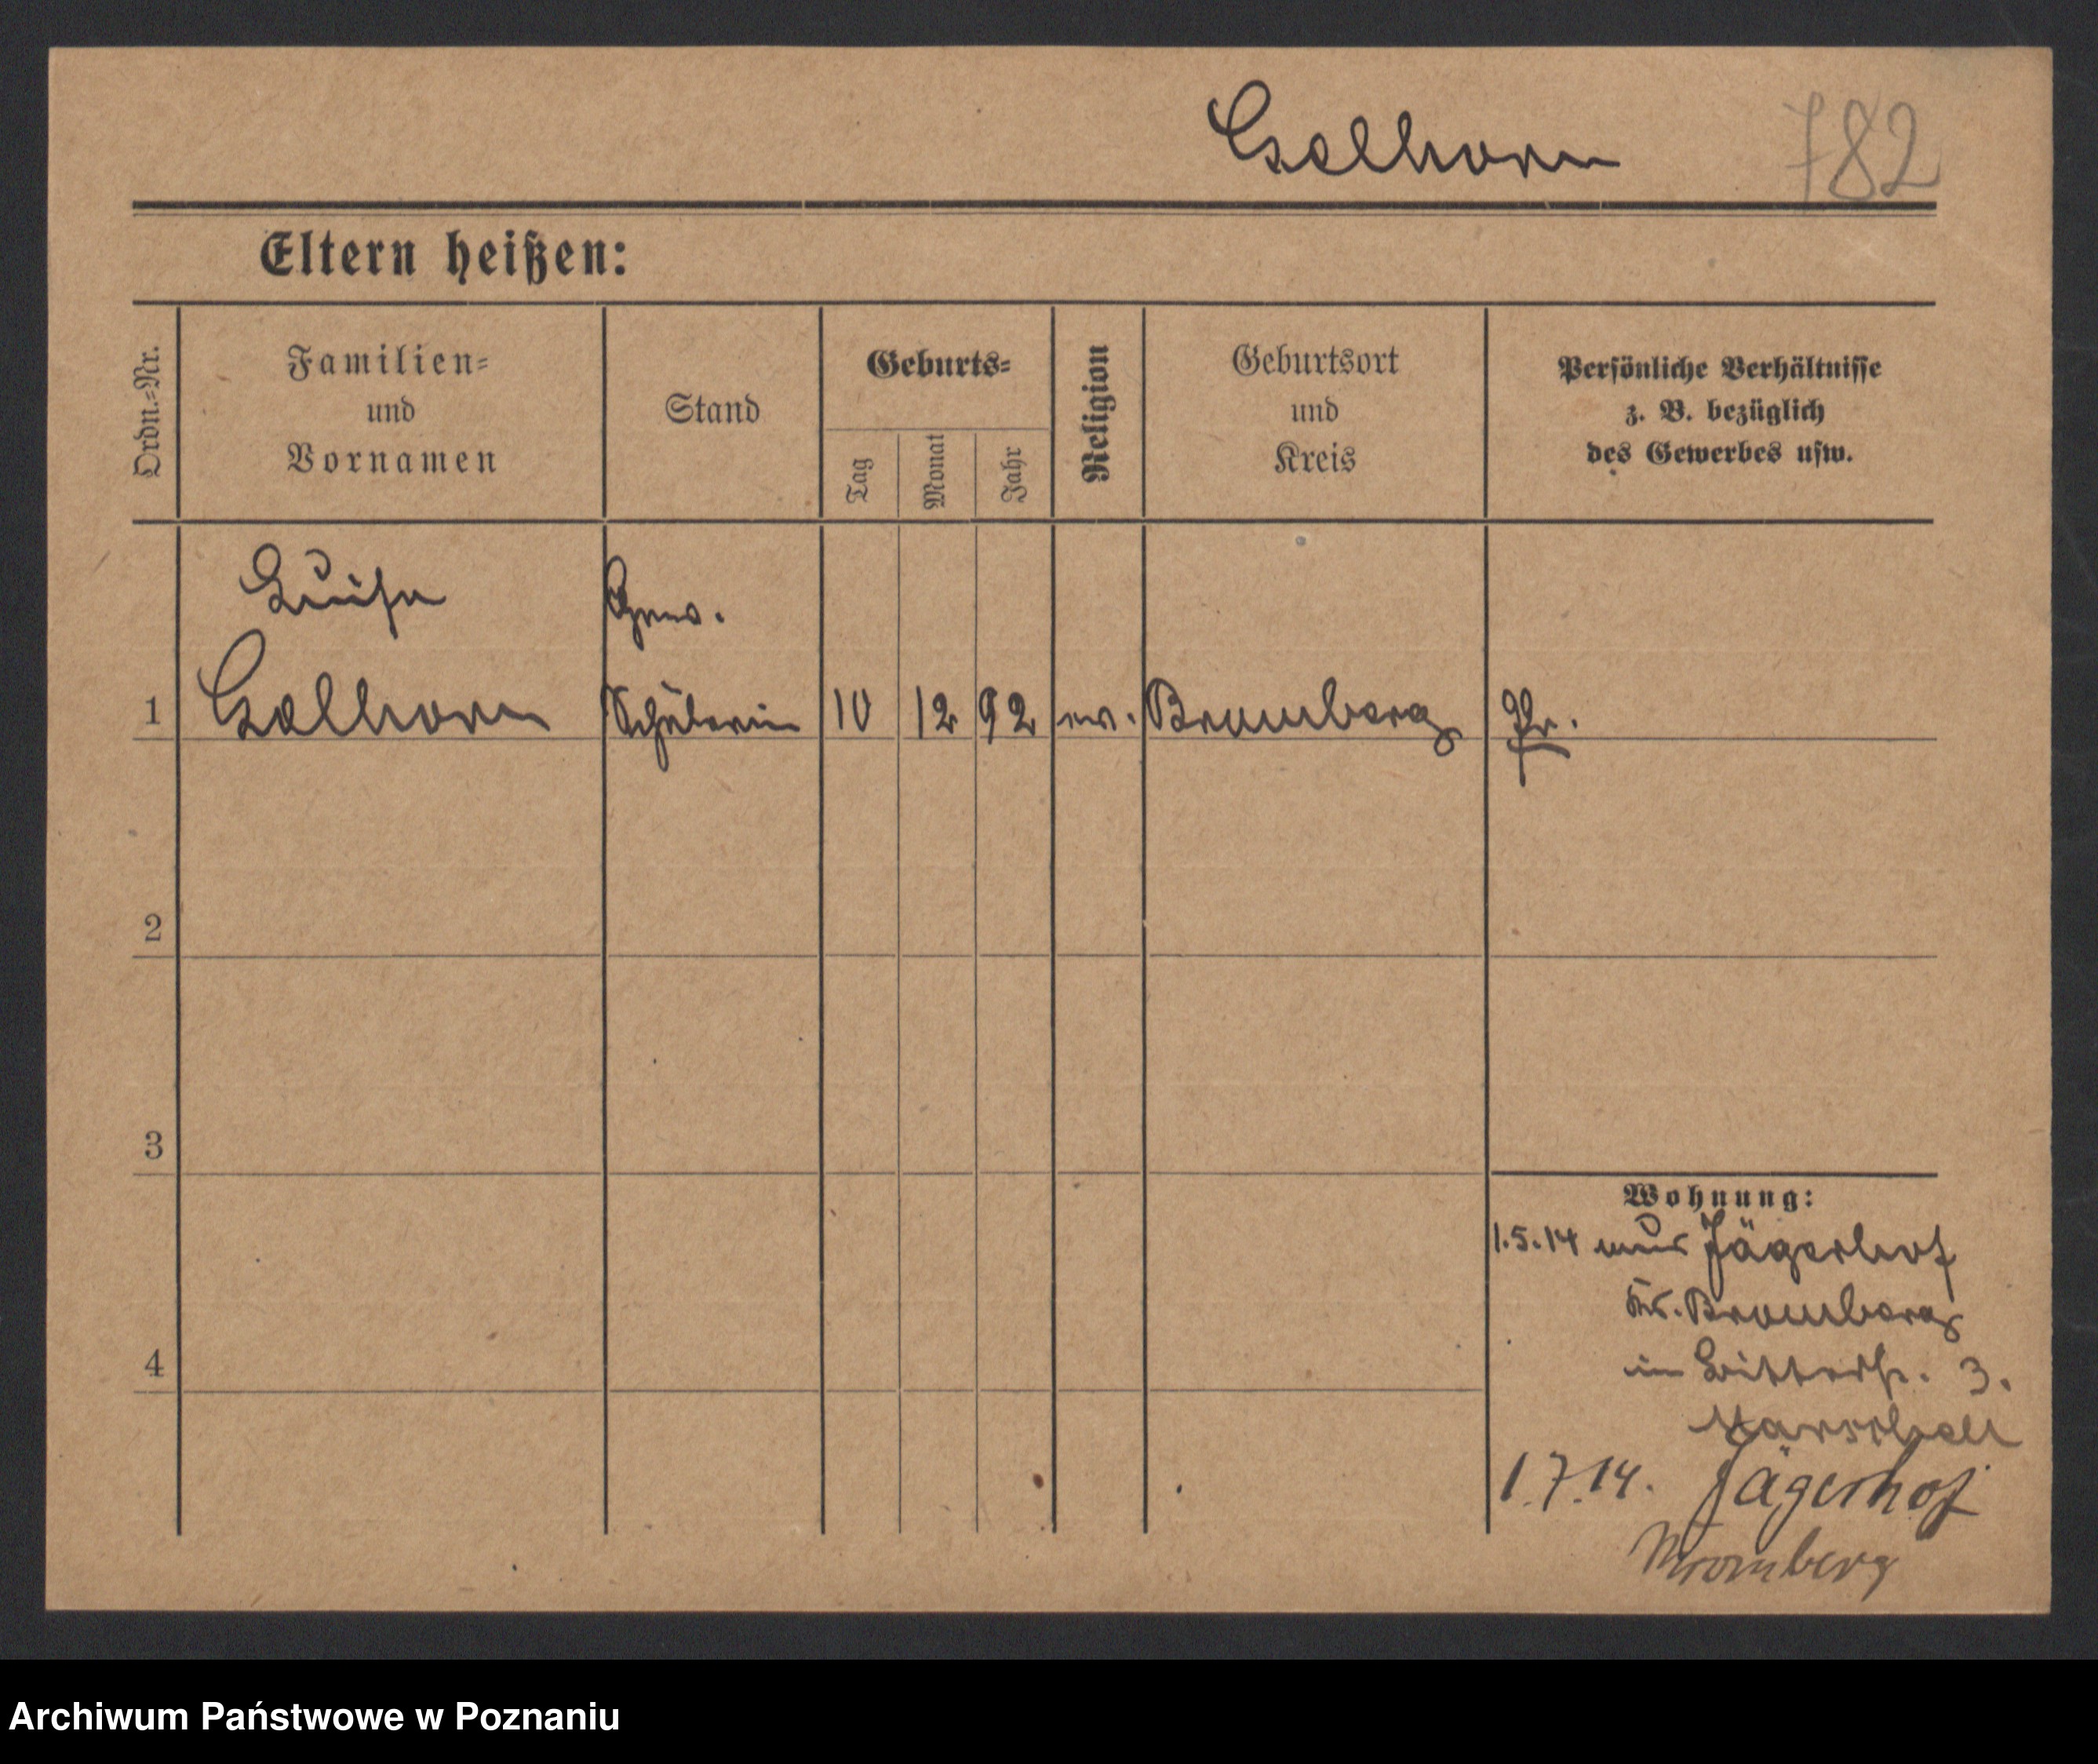 782
Eltern heißen:
Ordn.-Nr.
Familien-
und
Vornamen
Stand
Geburts-
Tag
Monat
Jahr
Religion
Geburtsort
und
Kreis
Persönliche Verhältnisse
z. B. bezüglich
des Gewerbes usw.
Luise
Gew.
1 Schülerin 10 12 92 ev. Bromberg Pr.
2
3
4
Wohnung:
1.5.14 aus Jägerhof
Kr. Bromberg
in 3.
1.7.14. Jägerhof
Bromberg
Archiwum Państwowe w Poznaniu